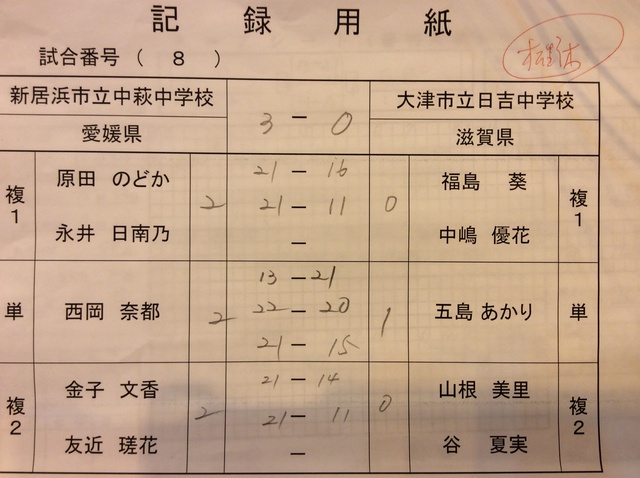 記録用紙
試合番号（ 8 ）
新居浜市立中萩中学校 3 － 0 大津市立日吉中学校
愛媛県 滋賀県
複1 原田 のどか 永井 日南乃 2
21 － 16
21 － 11
－
0 福島 葵 中嶋 優花 複1
単 西岡 奈都 2
13 － 21
22 － 20
21 － 15
1 五島 あかり 単
複2 金子 文香 友近 瑳花 2
21 － 14
21 － 11
－
0 山根 美里 谷 夏実 複2